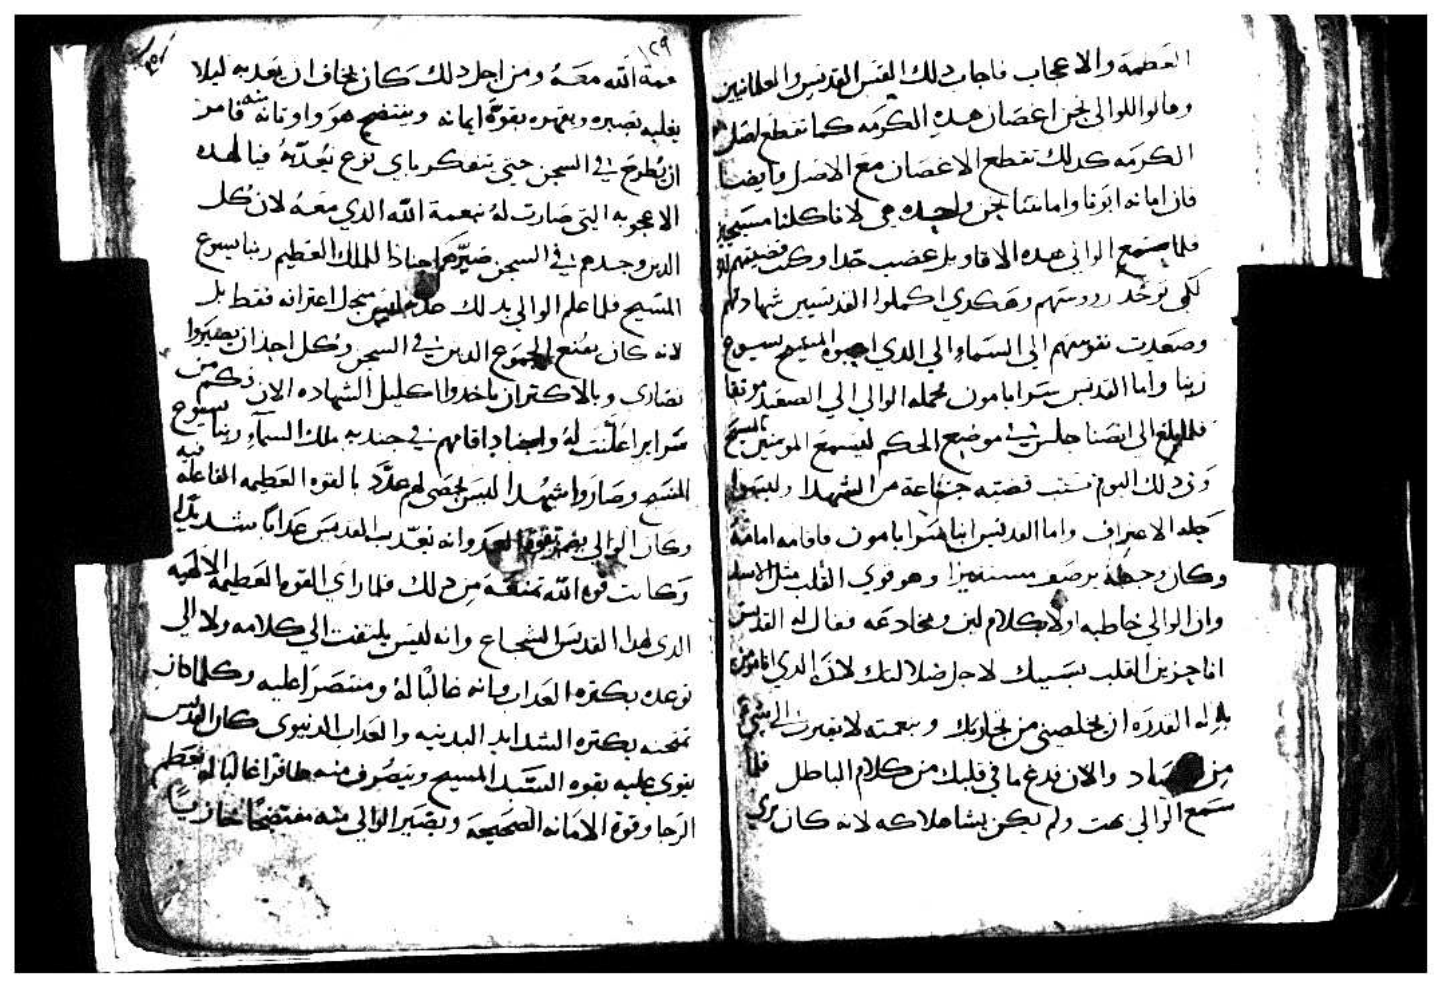 العظمه والاعجاب فاجاب دلك القس القديس والعلمانيين
وقالوا للوالي نحن اغصان هده الكرمه كما تقطع اصل
الكرمه كدلك تقطع الاغصان مع الاصل وايضا
فان امانه ابونا وامانتنا نحن واحده هي لاننا كلنا مسيحيين
فلما سمع الوالي هده الاقاويل غضب جدا وكتب قضيتهم
لكي توخد رووسهم وهكدي اكملوا القديسيين شهادتهم
وصعدت نفوسهم الي السماء الي الدي احبوه المسيح يسوع
ربنا واما القديس سرابامون فحمله الوالي الي الصعيد موثقا
فلما بلغ الي انصنا جلس في موضع الحكم ليسمع المومنين بالمسيح
وفي دلك اليوم كتب قضيه جماعة من الشهدا
جله الاعتراف واما القديس انبا سرابامون فاقامه امامه
وكان وجهه مستنيرا وهو قوي القلب مثل الاسد
وان الوالي خاطبه اولا بكلام لين ومخادعه فقال له القديس
انا حزين القلب بسببك لاجل ضلالتك لان الدي انا مومن
به له القدره ان يخلصني من تجاربك وبنعمته لا يقرب الي شي
من والان فدع ما في قلبك من كلام الباطل فلما
سمع الوالي بهت ولم يكن يشا هلاكه لانه كان يري
١٢٩
نعمة الله معه ومن اجل دلك كان يخاف ان يعدبه ليلا
يغلبه بصبره ويقهره بقوة ايمانه ويفتضح هو واوثانه منه فامر
ان يطرح في السجن حتي يتفكر باي نوع يعدبه فيا لهده
الاعجوبه التي صارت له بنعمة الله الدي معه لان كل
الدين وجدهم في السجن صيرهم اجنادا للملك العظيم ربنا يسوع
المسيح فلما علم الوالي بدلك ليس من اجل اعترافه فقط بل
لانه كان يقنع الجموع الدين في السجن وكل احد ان يصيروا
نصارى وبالاكتر ان ياخدوا اكليل الشهاده الان فكم من
سراير اعلنت له واجناد اقامهم في جنديه ملك السماء ربنا يسوع
المسيح وصاروا شهدا ليس يحصى لهم عدد بالقوه العظيمه الفاعله فيه
وكان الوالي وانه يعدب القديس عدابا شديدا
وكانت قوه الله تمنعه من دلك فلما راي القوه العظيمه الالهيه
الدى لهدا القديس الشجاع وانه ليس يلتفت الي كلامه ولا الي
توعده بكتره العداب وانه غالبا له ومنتصرا عليه وكلما كان
يمتحنه بكتره الشدايد البدنيه والعداب الدنيوى كان القديس
يقوى عليه بقوه السيد المسيح وينصرف منه ظافرا غالبا له بعظم
الرجا وقوة الامانه الصحيحه ويصير الوالي منه مفتضحا خازيا